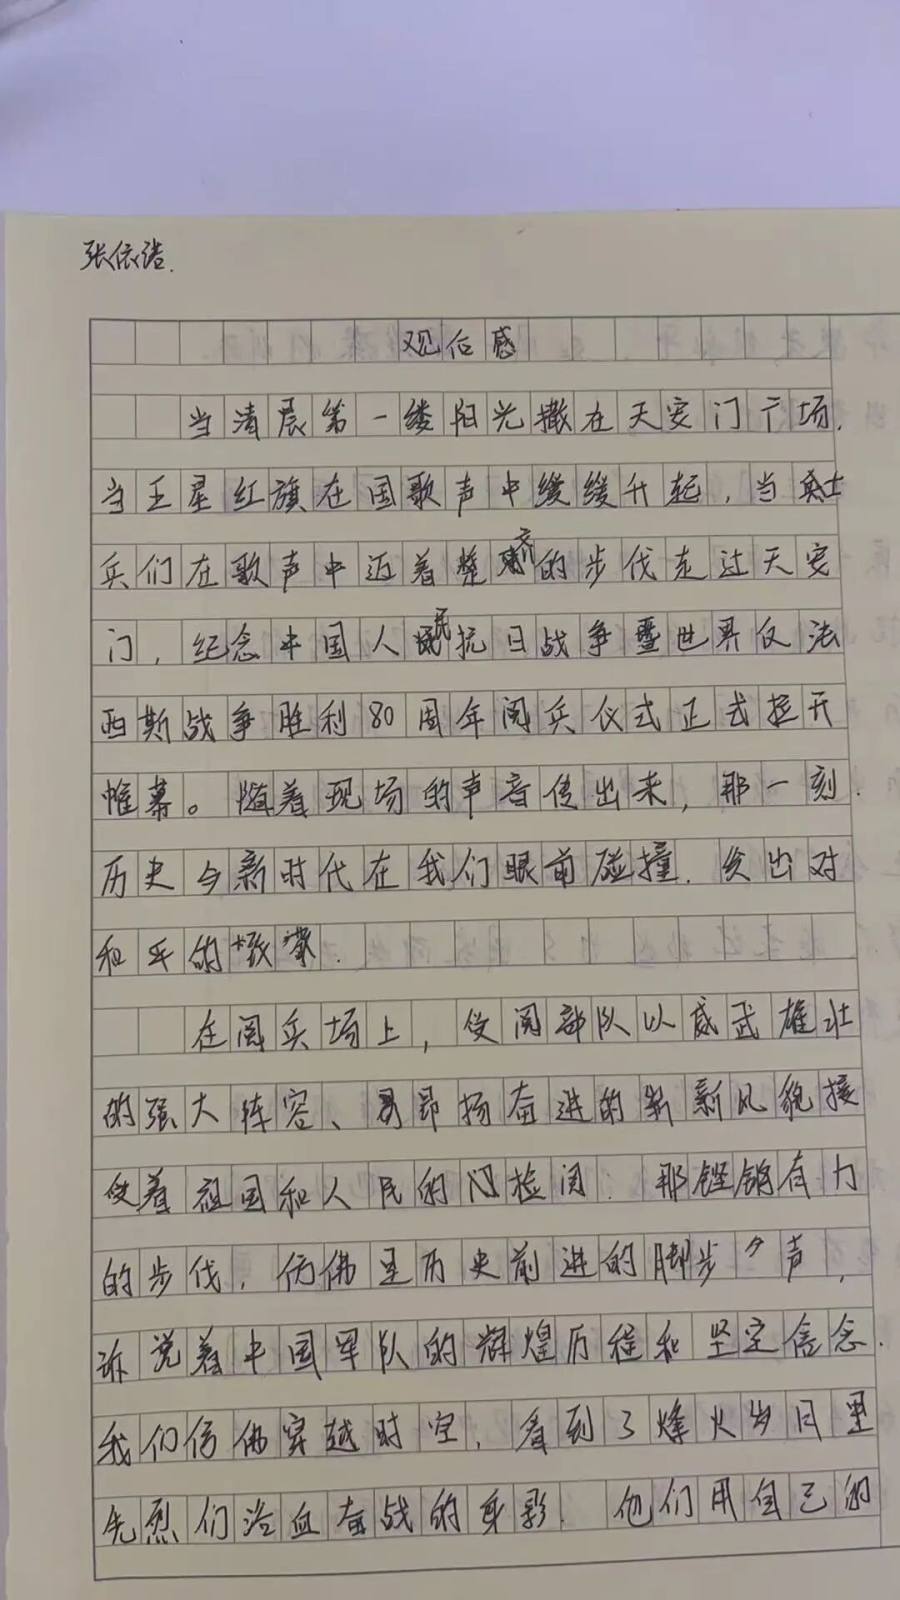 张依诺.
观后感
当清晨第一缕阳光撒在天安门广场.
当五星红旗在国歌声中缓缓升起,当士
兵们在歌声中迈着整齐的步伐走过天安
门,纪念中国人民抗日战争暨世界反法
西斯战争胜利80周年阅兵仪式正式拉开
帷幕。随着现场的声音传出来,那一刻.
历史与新时代在我们眼前碰撞.发出对
和平的
在阅兵场上,受阅部队以威武雄壮
的强大阵容、昂扬奋进的新风貌接
受着祖国和人民的检阅.那铿锵有力
的步伐,仿佛是历史前进的脚步声,
诉说着中国军队的辉煌历程和坚定信念.
我们仿佛穿越时空,看到了烽火岁月里
先烈们浴血奋战的身影.他们用自己的